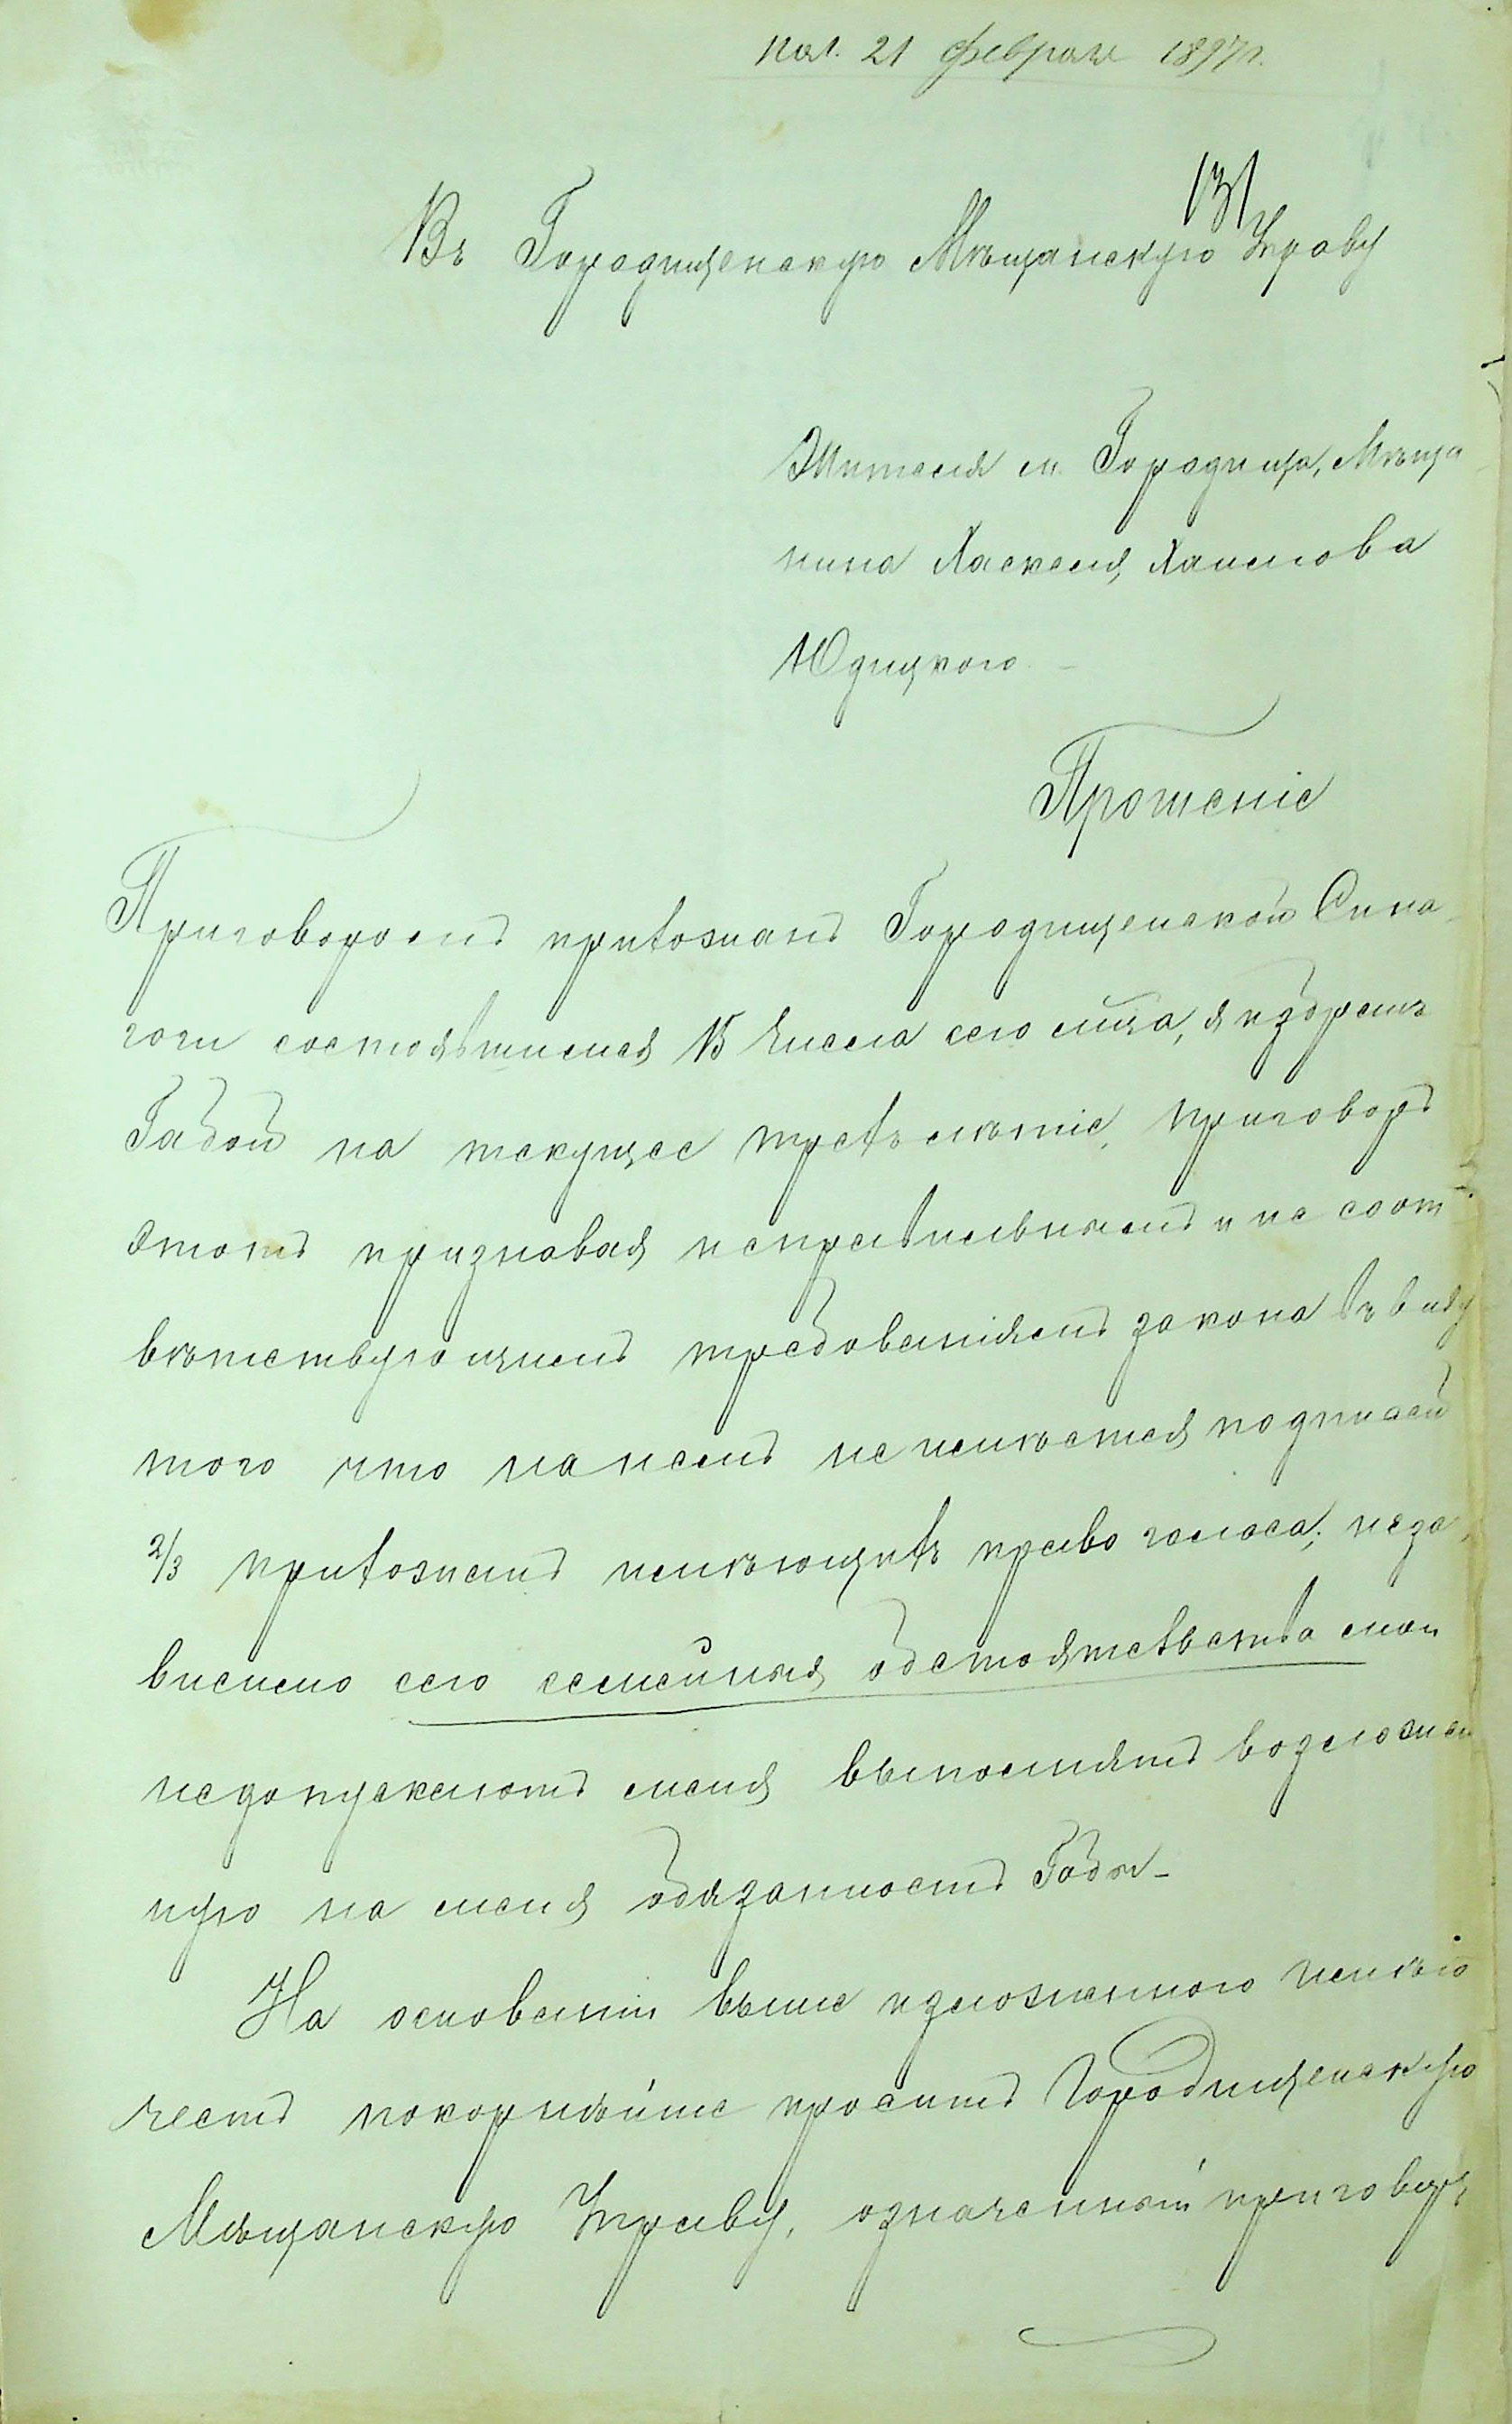 Пол. 21 февраля 1897 г.
131
Въ Городищенскую Мѣщанскую Управу
Жителя м. Городища, Мѣща
нина Хаскеля Хаимова
Юдицкого
Прошеніе
Приговоромъ прихожанъ Городищенской Сина
гоги состоявшимся 15 числа сего мѣца, я избранъ
Габой на текущее трехъ лѣтіе, приговоръ
этотъ признавая неправильнымъ и не соот
вѣтствующимъ требованіямъ закона въ виду
того что на немъ не имѣется подписей
2/3 прихожанъ имѣющихъ право голоса; неза
висимо сего семейныя обстоятельства мои
недопускаютъ меня выполнять возложен
ную на меня обязанность Габы -
На основаніи выше изложенного имѣю
честь покорнѣйше просить Городищенскую
Мѣщанскую Управу, означенный приговоръ